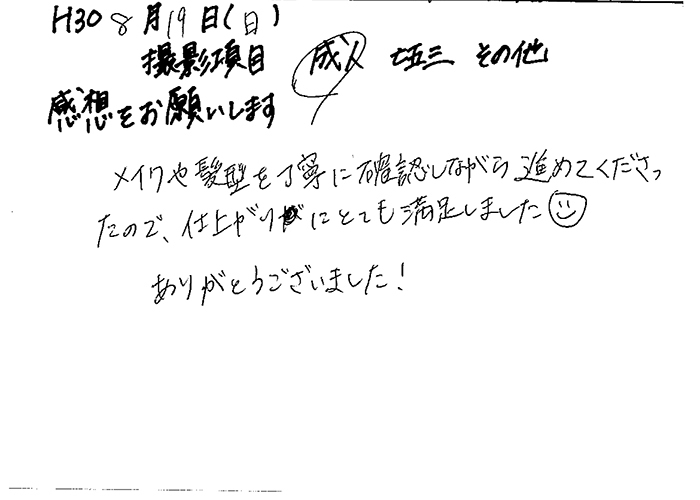 H30 8月19日(日)
撮影項目 成人 七五三 その他
感想をお願いします
メイクや髪型を丁寧に確認しながら進めてくださっ
たので、仕上がりにとても満足しました
ありがとうございました!